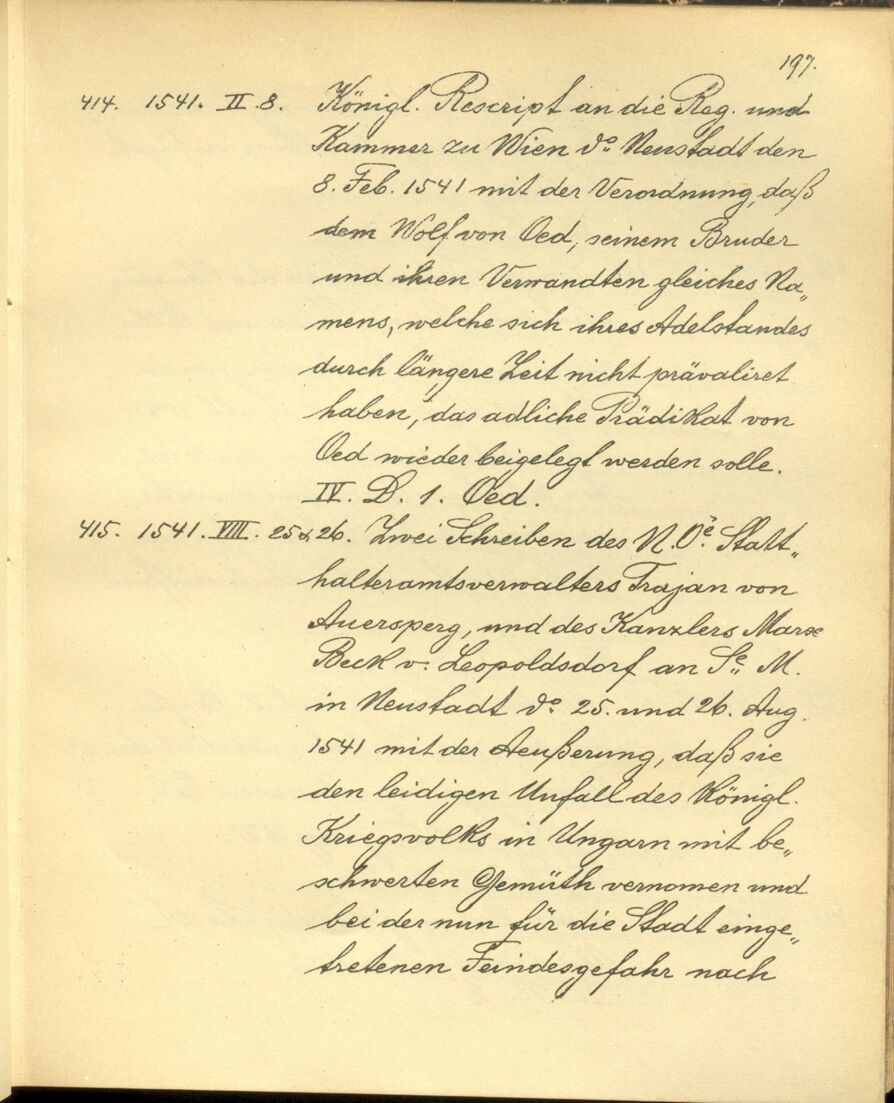 197.
414. 1541. II. 8. Königl. Rescript an die Reg. und
Kammer zu Wien do. Neustadt den
8. Feb. 1541 mit der Verordnung, daß
dem Wolf von Oed, seinem Bruder
und ihren Verwandten gleiches Na„
mens, welche sich ihres Adelstandes
durch längere Zeit nicht prävaliret
haben, das adliche Prädikat von
Oed wieder beigelegt werden solle.
IV. D. 1. Oed.
415. 1541. VIII. 25 & 26. Zwei Schreiben des N. Oe. Statt„
halteramtsverwalters Trajan von
Auersperg, und des Kanzlers Marx
Beck v. Leopoldsdorf an Se. M.
in Neustadt do. 25. und 26. Aug.
1541 mit der Aeußerung, daß sie
den leidigen Unfall des Königl.
Kriegsvolks in Ungarn mit be„
schwerten Gemüth vernomen und
bei der nun für die Stadt einge„
tretenen Feindesgefahr nach